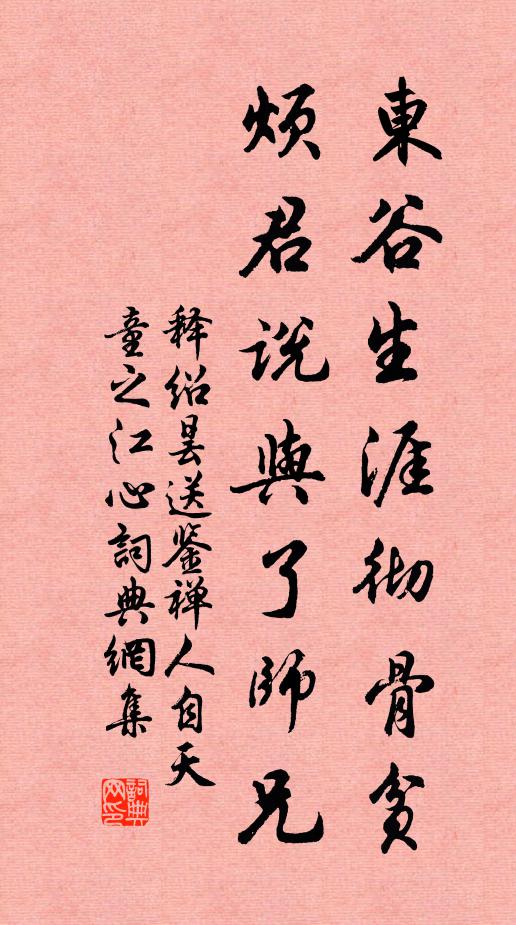 東谷生涯彻骨貧
煩君説與了師兄
释绍昙送鉴禅人自天
童之江心詞典網集
詞典网印